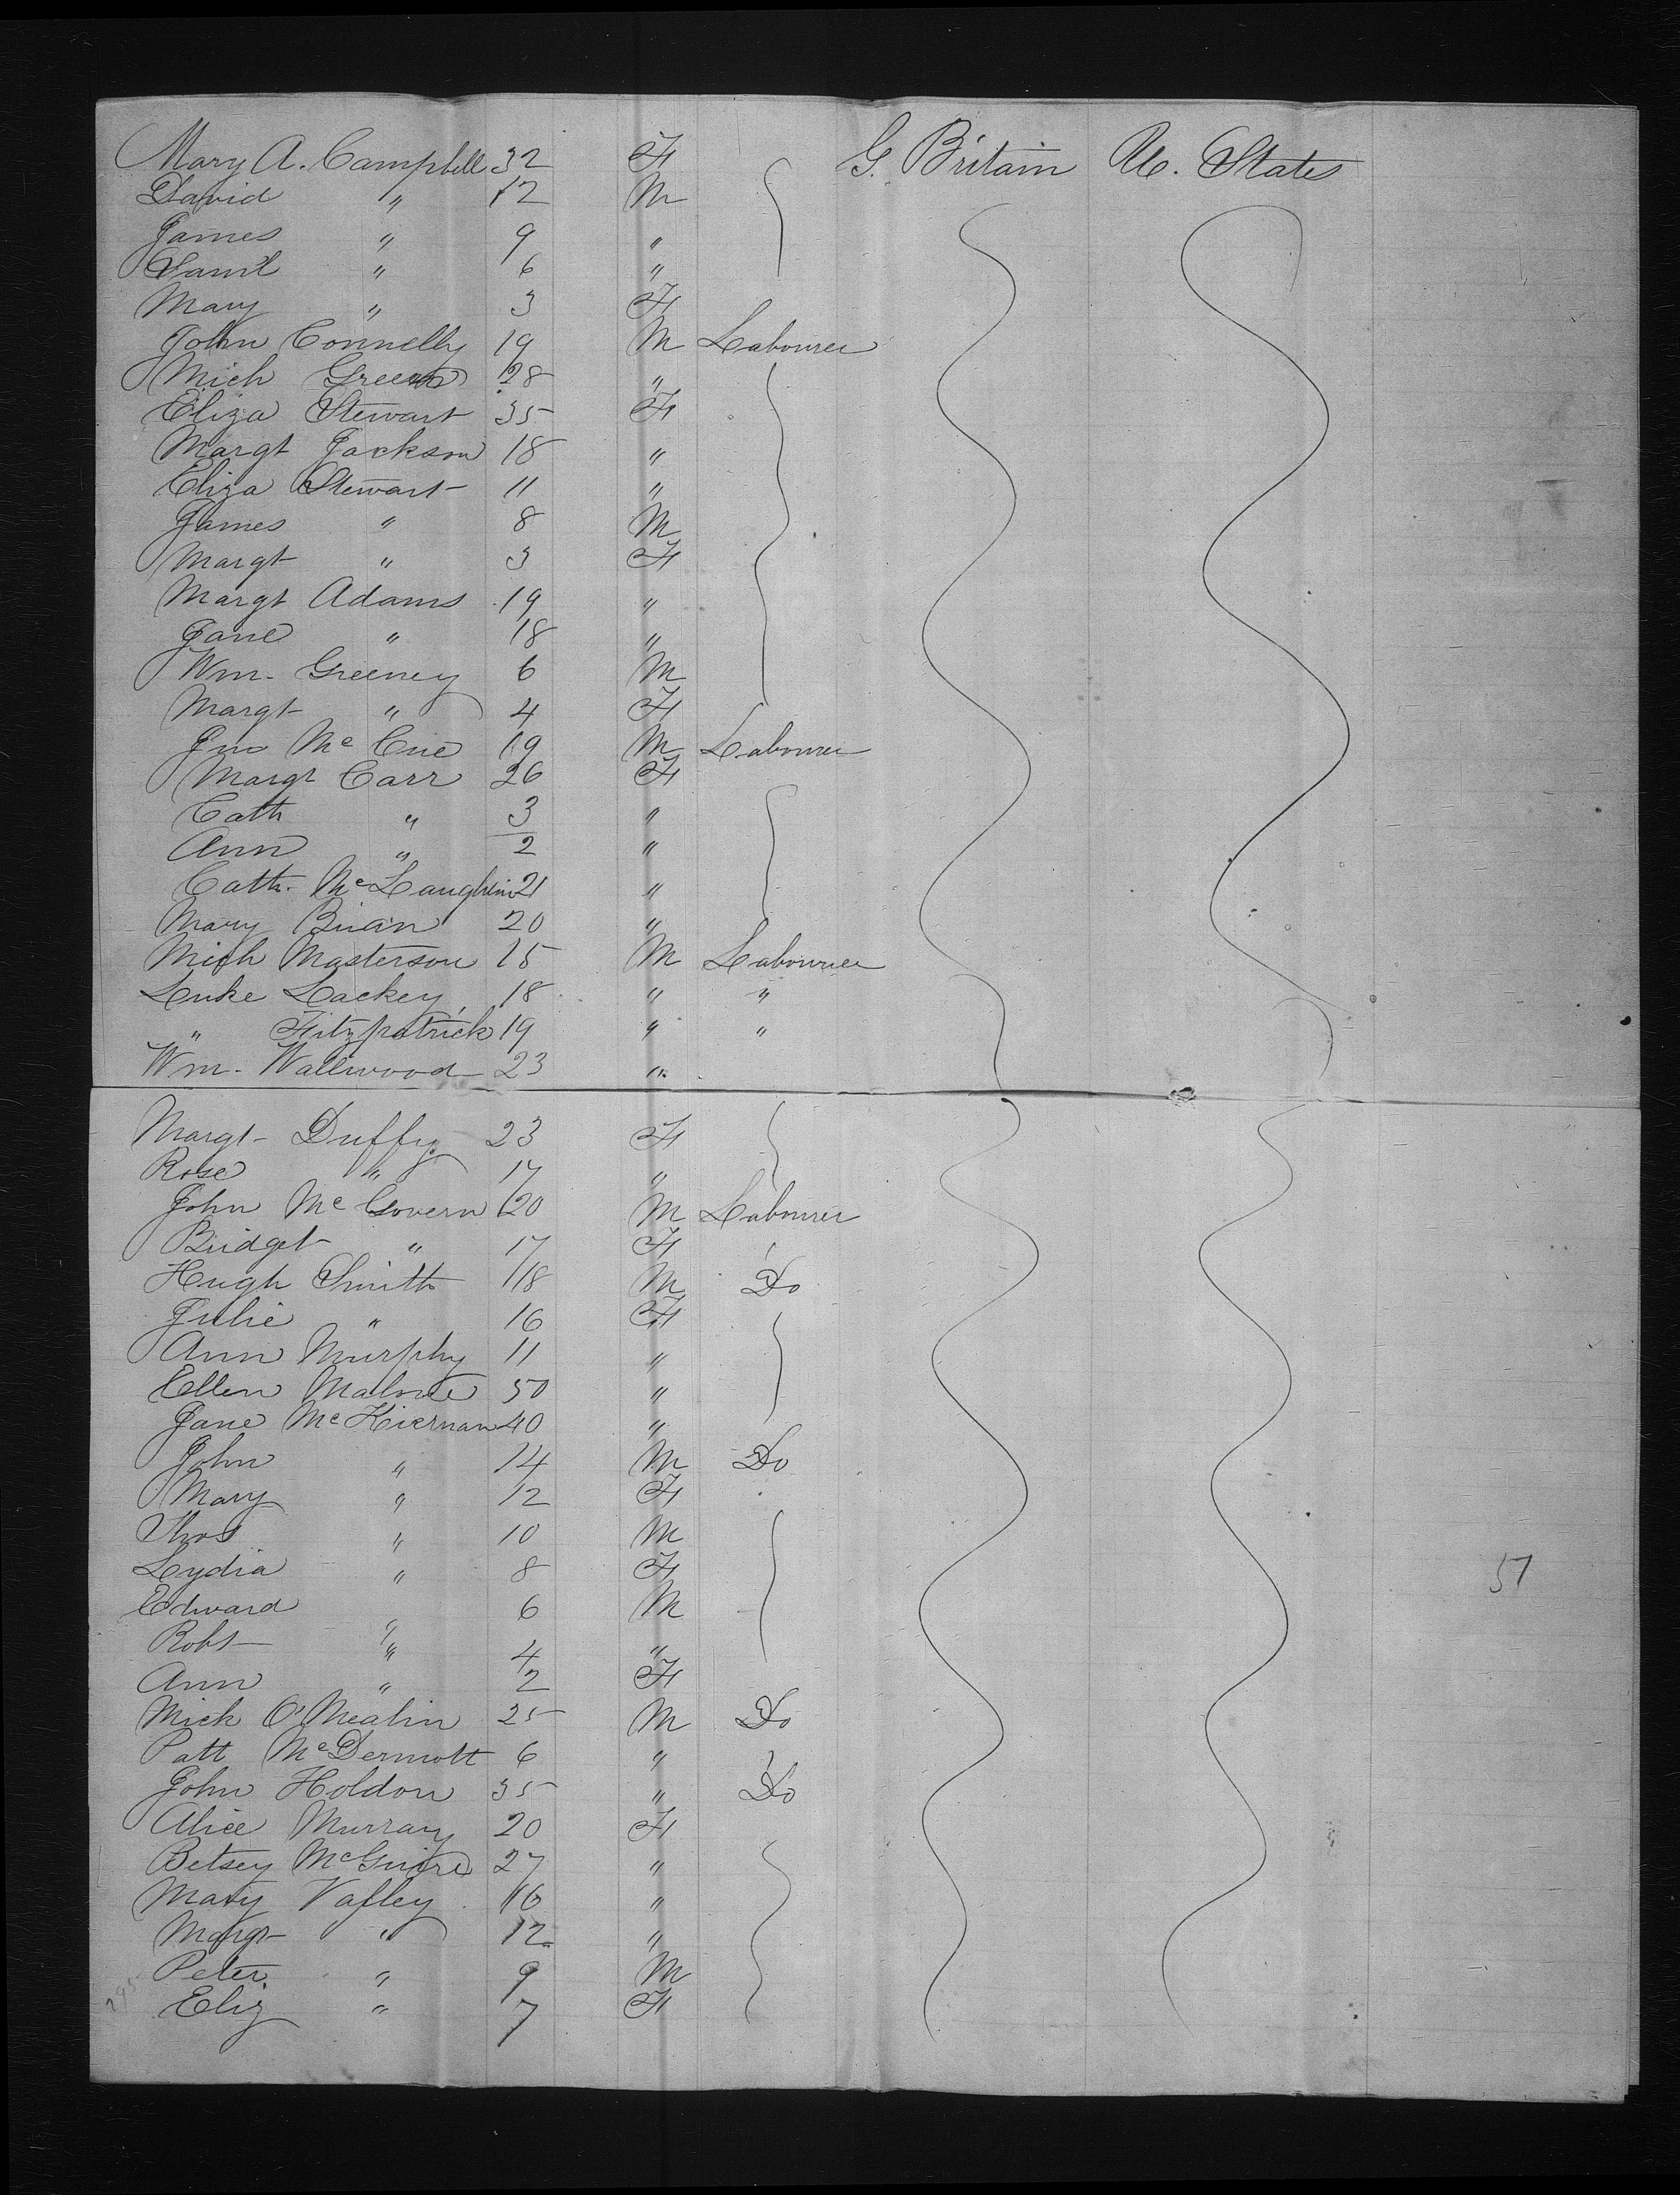 Mary A. Campbell 32 F G. Britain U. States
David " 12 M
James " 9 "
Saml " 6 "
Mary " 3 F
John Connelly 19 M Labourer
Mich 28 "
Eliza Stewart 35 F
Margt Jackson 18 "
Eliza Stewart 11 "
James " 8 M
Margt " 3 F
Margt Adams 19 "
Jane " 18 "
Wm. Greeney 6 M
Margt " 4 F
Jno Mc Cue 19 M Labourer
Margt Carr 26 F
Cath " 3 "
Ann " 2 "
Cath. McLaughlin 21 "
Mary Brian 20 "
Mich Masterson 15 M Labourer
Luke Lackey 18 " "
" Fitzpatrick 19 " "
Wm. Wallwood 23 "
Margt Duffy 23 F
Rose " 17 "
John Mc Govern 20 M Labourer
Bridget " 17 F
Hugh Smith 18 M Do
Julie " 16 F
Ann Murphy 11 "
Ellen Malone 50 "
Jane McKiernan 40 "
John " 14 M Do
Mary " 12 F
Thos " 10 M
Lydia " 8 F
Edward " 6 M
Robt " 4 "
Ann " 2 F
Mick O'Mealin 25 M Do
Patt McDermott 6 "
John Holdon 35 " Do
Alice Murray 20 F
Betsey McGuire 27 "
Mary Vafley 16 "
Margt " 12 "
Peter " 9 M
Eliz " 7 F
57